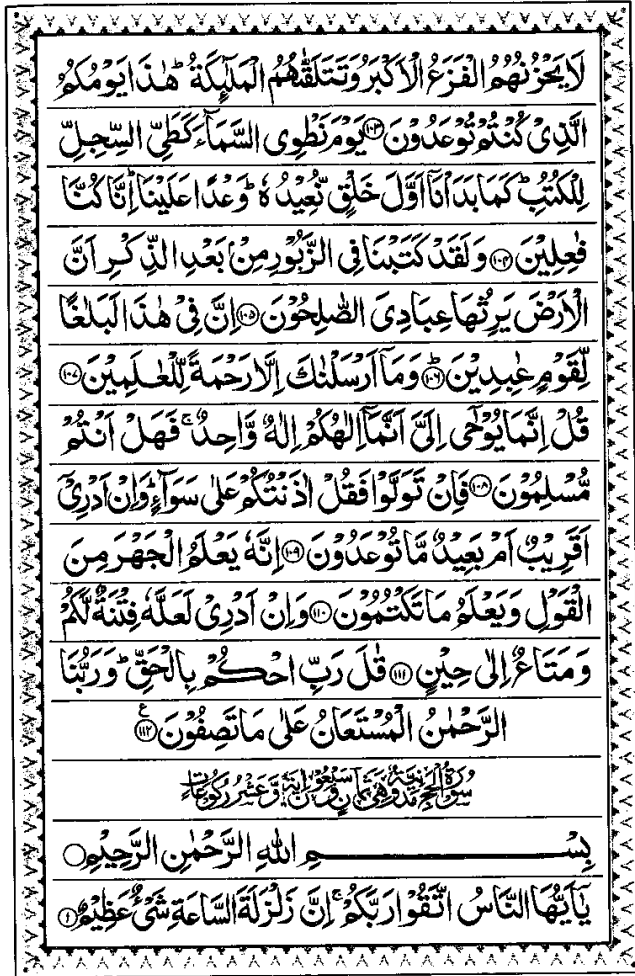 لَا يَحْزُنُهُمُ الْفَزَعُ الْاَكْبَرُ وَتَتَلَقّٰىهُمُ الْمَلٰٓئِكَةُ ؕ هٰذَا يَوْمُكُمُ
الَّذِیْ كُنْتُمْ تُوْعَدُوْنَ ۝۱۰۳ یَوْمَ نَطْوِی السَّمَآءَ كَطَیِّ السِّجِلِّ
لِلْكُتُبِ ؕ كَمَا بَدَاْنَاۤ اَوَّلَ خَلْقٍ نُّعِیْدُهٗ ؕ وَعْدًا عَلَیْنَا ؕ اِنَّا كُنَّا
فٰعِلِیْنَ ۝۱۰۴ وَلَقَدْ كَتَبْنَا فِی الزَّبُوْرِ مِنْۢ بَعْدِ الذِّكْرِ اَنَّ
الْاَرْضَ یَرِثُهَا عِبَادِیَ الصّٰلِحُوْنَ ۝۱۰۵ اِنَّ فِیْ هٰذَا لَبَلٰغًا
لِّقَوْمٍ عٰبِدِیْنَ ۝۱۰۶ؕ وَمَاۤ اَرْسَلْنٰكَ اِلَّا رَحْمَةً لِّلْعٰلَمِیْنَ ۝۱۰۷
قُلْ اِنَّمَا یُوْحٰۤی اِلَیَّ اَنَّمَاۤ اِلٰهُكُمْ اِلٰهٌ وَّاحِدٌ ۚ فَهَلْ اَنْتُمْ
مُّسْلِمُوْنَ ۝۱۰۸ فَاِنْ تَوَلَّوْا فَقُلْ اٰذَنْتُكُمْ عَلٰی سَوَآءٍ ؕ وَاِنْ اَدْرِیْۤ
اَقَرِیْبٌ اَمْ بَعِیْدٌ مَّا تُوْعَدُوْنَ ۝۱۰۹ اِنَّهٗ یَعْلَمُ الْجَهْرَ مِنَ
الْقَوْلِ وَیَعْلَمُ مَا تَكْتُمُوْنَ ۝۱۱۰ وَاِنْ اَدْرِیْ لَعَلَّهٗ فِتْنَةٌ لَّكُمْ
وَمَتَاعٌ اِلٰی حِیْنٍ ۝۱۱۱ قٰلَ رَبِّ احْكُمْ بِالْحَقِّ ؕ وَرَبُّنَا
الرَّحْمٰنُ الْمُسْتَعَانُ عَلٰی مَا تَصِفُوْنَ ۝۱۱۲ ع
سُوْرَةُ الْحَجِّ مَدَنِیَّةٌ وَّهِیَ ثَمَانٍ وَّسَبْعُوْنَ اٰیَةً وَّعَشْرُ رُكُوْعَاتٍ
بِسْمِ اللّٰهِ الرَّحْمٰنِ الرَّحِیْمِ ۝
یٰۤاَیُّهَا النَّاسُ اتَّقُوْا رَبَّكُمْ ۚ اِنَّ زَلْزَلَةَ السَّاعَةِ شَیْءٌ عَظِیْمٌ ۝۱